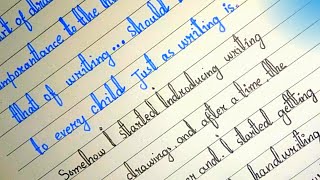 art of dra
importantance to the in
that of writing... should
to every child Just as writing is.
Somehow i started Introducing writing
drawings. and after a time. the
er and. I started getting
handwriting